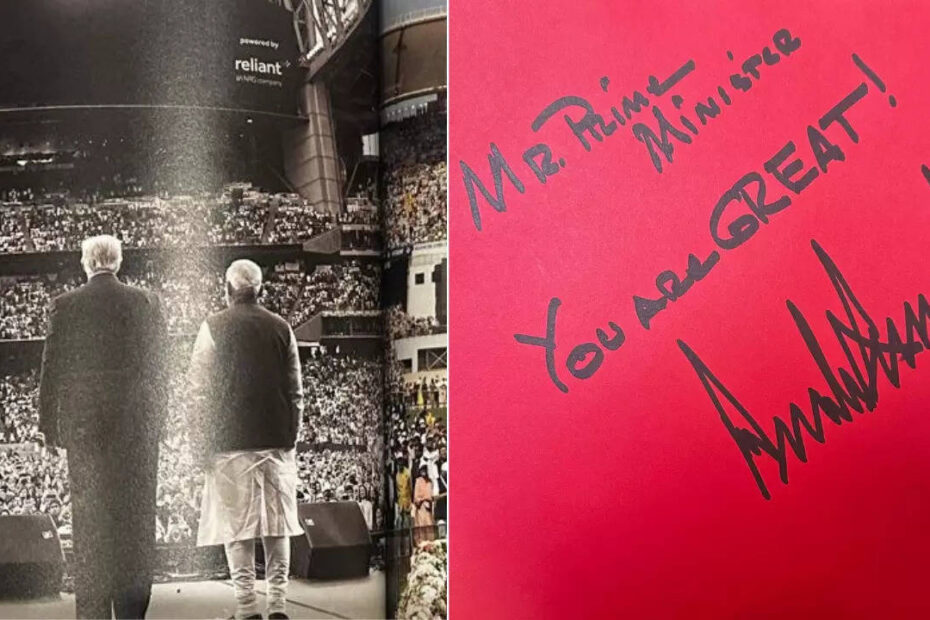 powered by
reliant
an NRG company
Mr. Prime
Minister
You are GREAT!